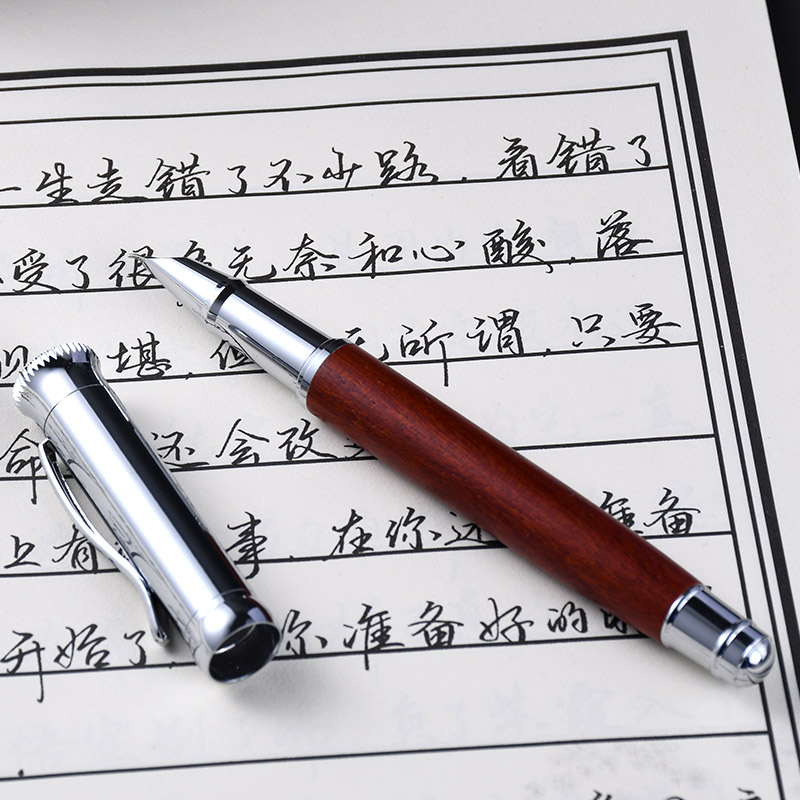 一生走错了不少路，看错了
受了很多无奈和心酸，落
堪，但 无所谓，只要
命 还会改
上有 事，在你还 准备
开始了 你准备好的